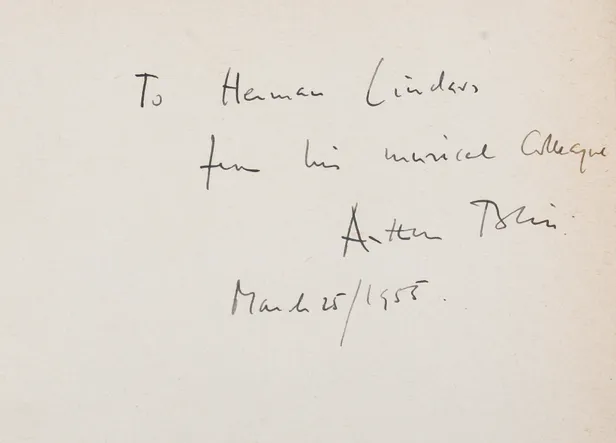 To Herman Lindars
from his musical Colleague
Arthur Bliss.
March 25/1955.